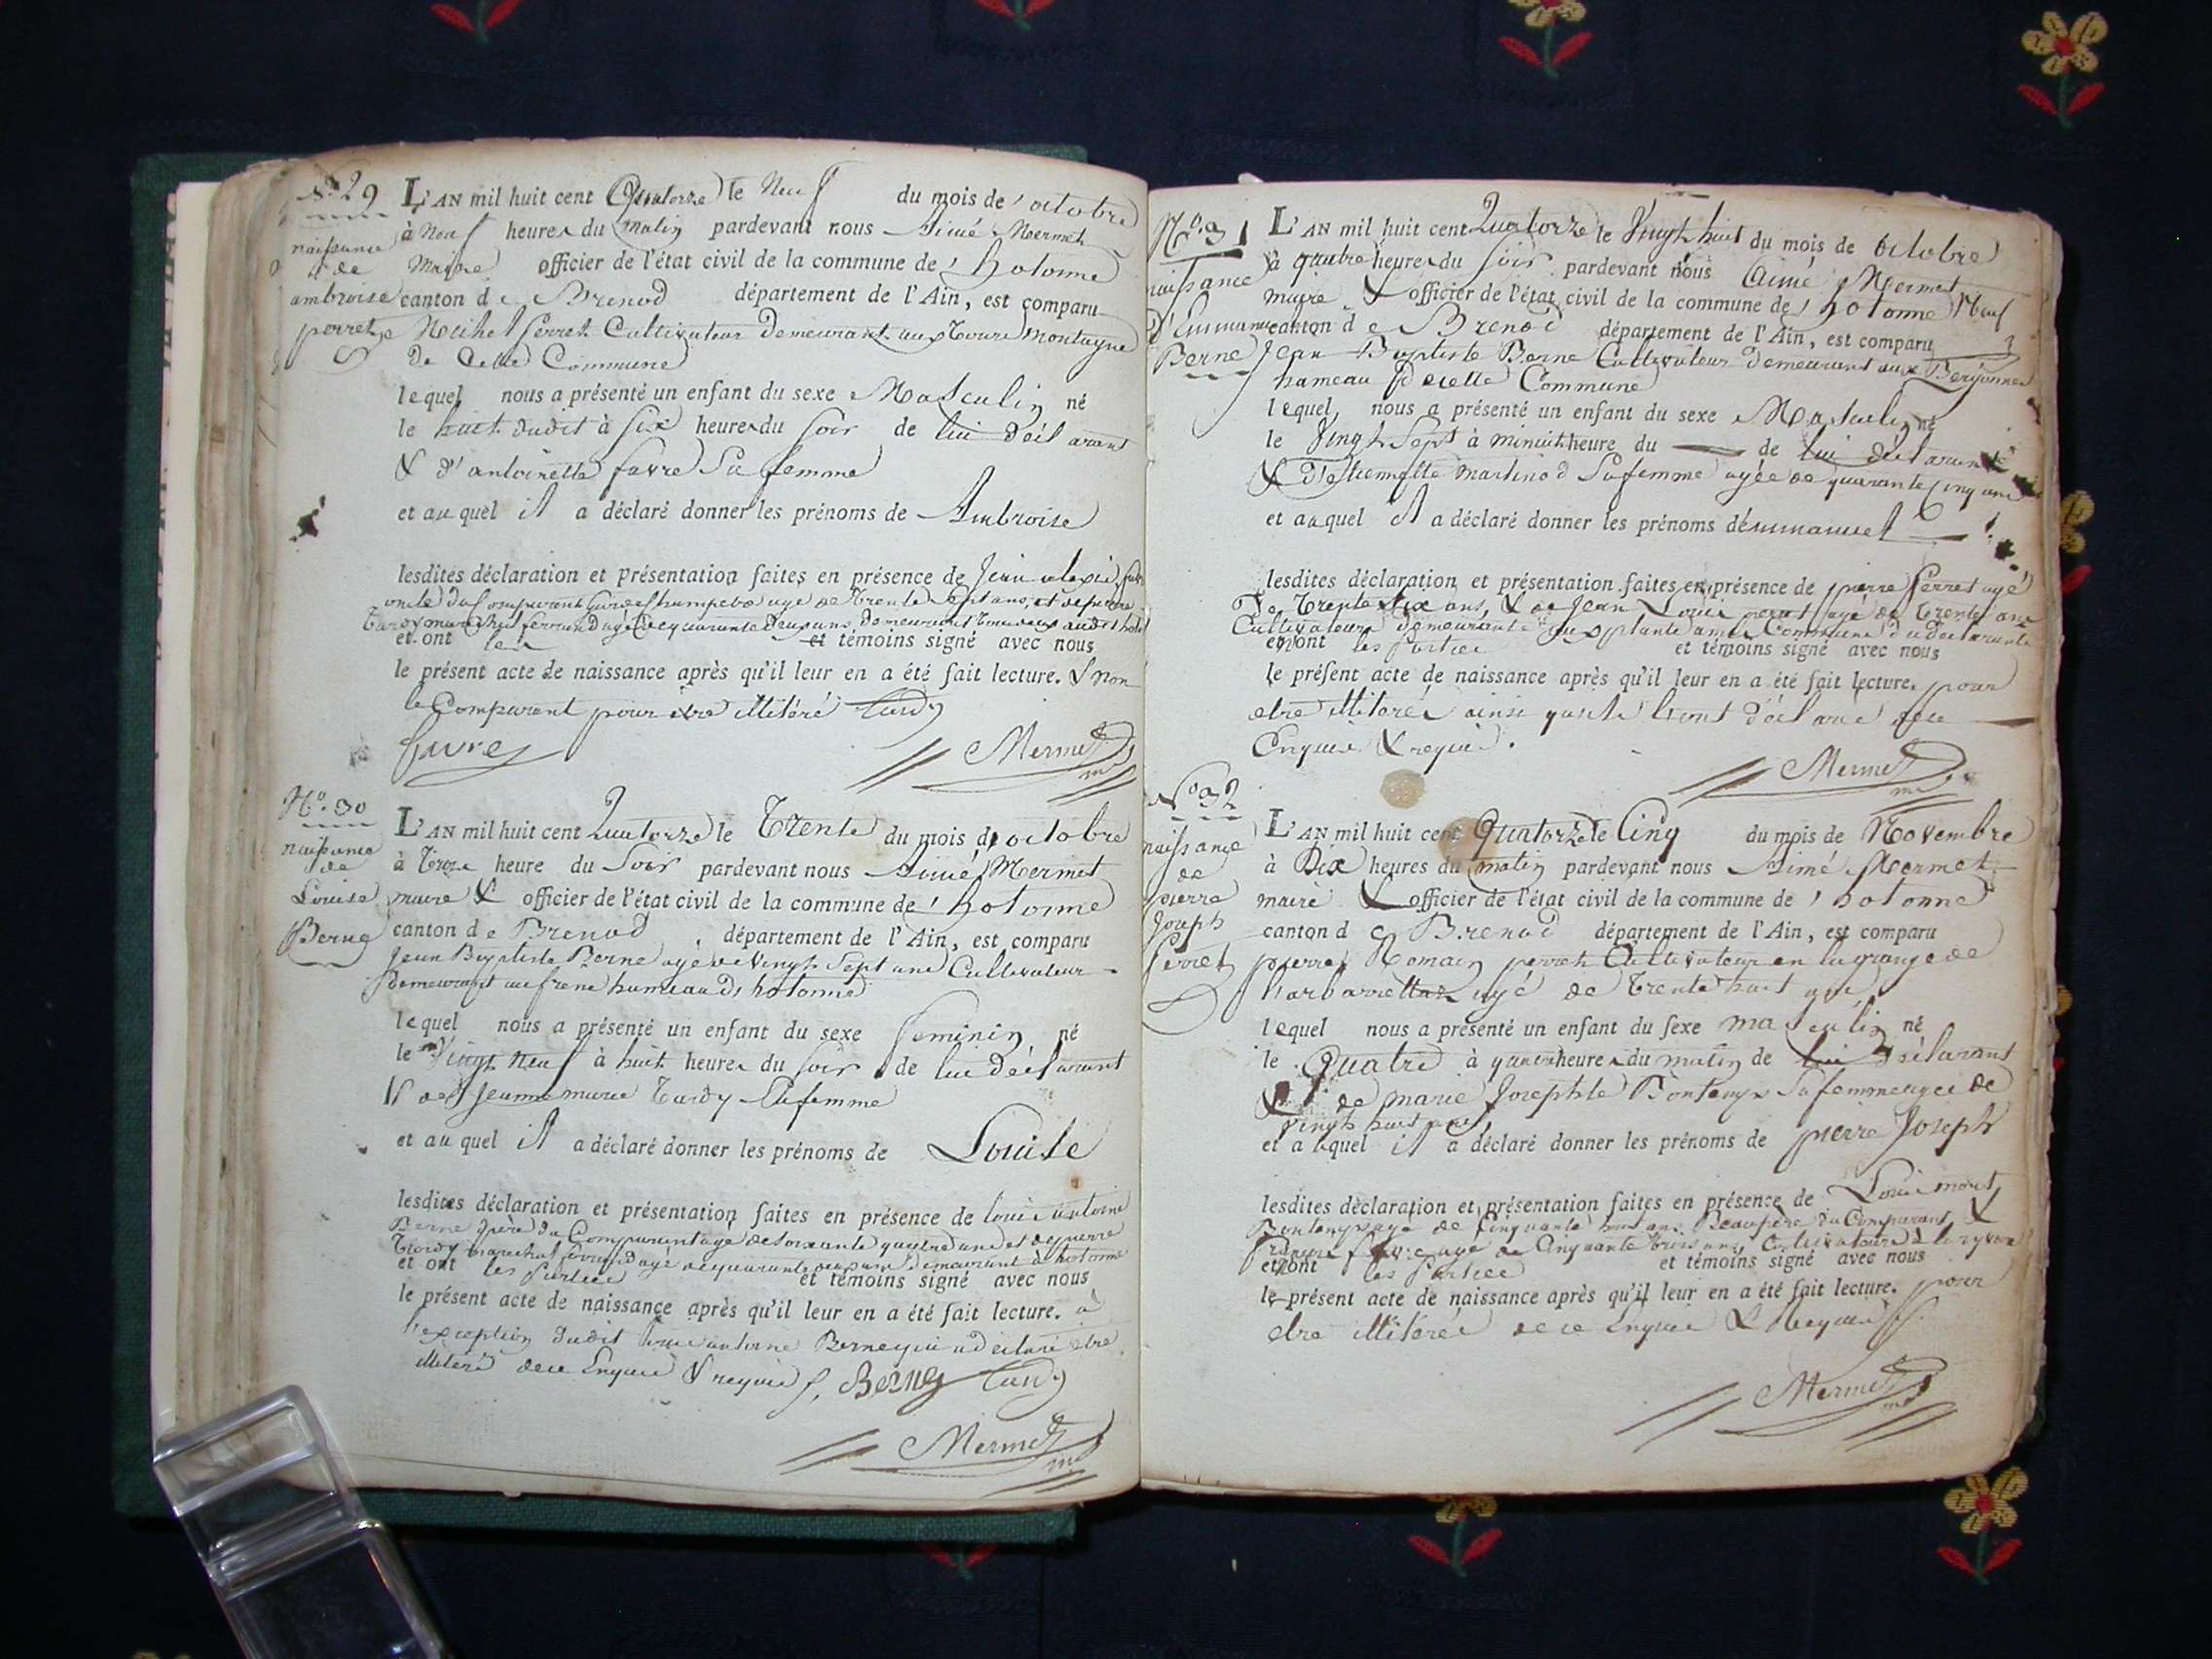 No 29
naissance
de
ambroise
perret
L'AN mil huit cent Quatorze le Neuf du mois de octobre
à Neuf heures du matin pardevant nous Aimé Mermet
Maire officier de l'état civil de la commune de hotonne
canton de Brenod département de l'Ain, est comparu
Michel perret Cultivateur demeurant aux montagne
de Cette Commune
lequel nous a présenté un enfant du sexe Masculin né
le huit dudit à six heures du soir de lui déclarant
& d'antoinette favre Sa femme
et au quel il a déclaré donner les prénoms de Ambroise
lesdites déclaration et présentation faites en présence de Jean
oncle du Comparant agé de trente sept ans, et de pierre
Tardy marechal ferrand agé de quarante deux ans demeurant
et ont et témoins signé avec nous
le présent acte de naissance après qu'il leur en a été fait lecture. & non
le Comparant pour etre illitéré Tardy
favre Mermet
No. 30
naissance
de
Louise
Berne
L'AN mil huit cent Quatorze le Trente du mois d'octobre
à Troix heure du Soir pardevant nous Aimé Mermet
maire & officier de l'état civil de la commune de hotonne
canton de Brenod département de l'Ain, est comparu
Jean Baptiste Berne agé de vingt Sept ans Cultivateur
demeurant au frene hameau d'hotonne
lequel nous a présenté un enfant du sexe feminin né
le Vingt neuf à huit heures du soir de lui déclarant
& de Jeanne marie Tardy Sa femme
et au quel il a déclaré donner les prénoms de Louise
lesdites déclaration et présentation faites en présence de louis antoine
Berne père du Comparant agé de soixante quatre ans et de pierre
Tardy marechal ferrand agé de quarante deux ans demeurant à hotonne
et ont les parties et témoins signé avec nous
le présent acte de naissance après qu'il leur en a été fait lecture. à
l'exception dudit louis antoine Berne qui a déclaré etre
illitéré de ce Enquis & requis. Berne Tardy
Mermet
No. 31
naissance
d'Emmanuel
Berne
L'AN mil huit cent Quatorze le Vingt huit du mois de octobre
à quatre heures du soir pardevant nous Aimé Mermet
maire & officier de l'état civil de la commune de hotonne
canton de Brenod département de l'Ain, est comparu
Jean Baptiste Berne Cultivateur demeurant aux
hameau de cette Commune
lequel nous a présenté un enfant du sexe Masculin né
le Vingt Sept à minuit heure du de lui déclarant
& d'Etiennette martinod Sa femme agée de quarante cinq ans
et auquel il a déclaré donner les prénoms d'emmanuel
lesdites déclaration et présentation faites en présence de pierre perret agé
de Trente six ans, & de Jean Louis perret agé de trente ans
Cultivateurs demeurants Commune du declarant
et ont les parties et témoins signé avec nous
le présent acte de naissance après qu'il leur en a été fait lecture. pour
etre illitérés ainsi qu'ils l'ont déclaré de ce
Enquis & requis.
Mermet
No 32
naissance
de
pierre
Joseph
Perret
L'AN mil huit cent Quatorze le Cinq du mois de Novembre
à Dix heures du matin pardevant nous Aimé Mermet
maire & officier de l'état civil de la commune de hotonne
canton de Brenod département de l'Ain, est comparu
pierre Romain perret Cultivateur en la grange de
agé de Trente huit ans
lequel nous a présenté un enfant du sexe masculin né
le Quatre à quatre heures du matin de lui déclarant
& de marie Josephte Bontemps Sa femme agée de
vingt huit ans
et auquel il a déclaré donner les prénoms de pierre Joseph
lesdites déclaration et présentation faites en présence de Louis
Bontemps agé de Cinquante huit ans Beaupère du Comparant &
agé de Cinquante trois ans Cultivateurs
et ont les parties et témoins signé avec nous
le présent acte de naissance après qu'il leur en a été fait lecture. pour
etre illitérés de ce Enquis & Requis.
Mermet